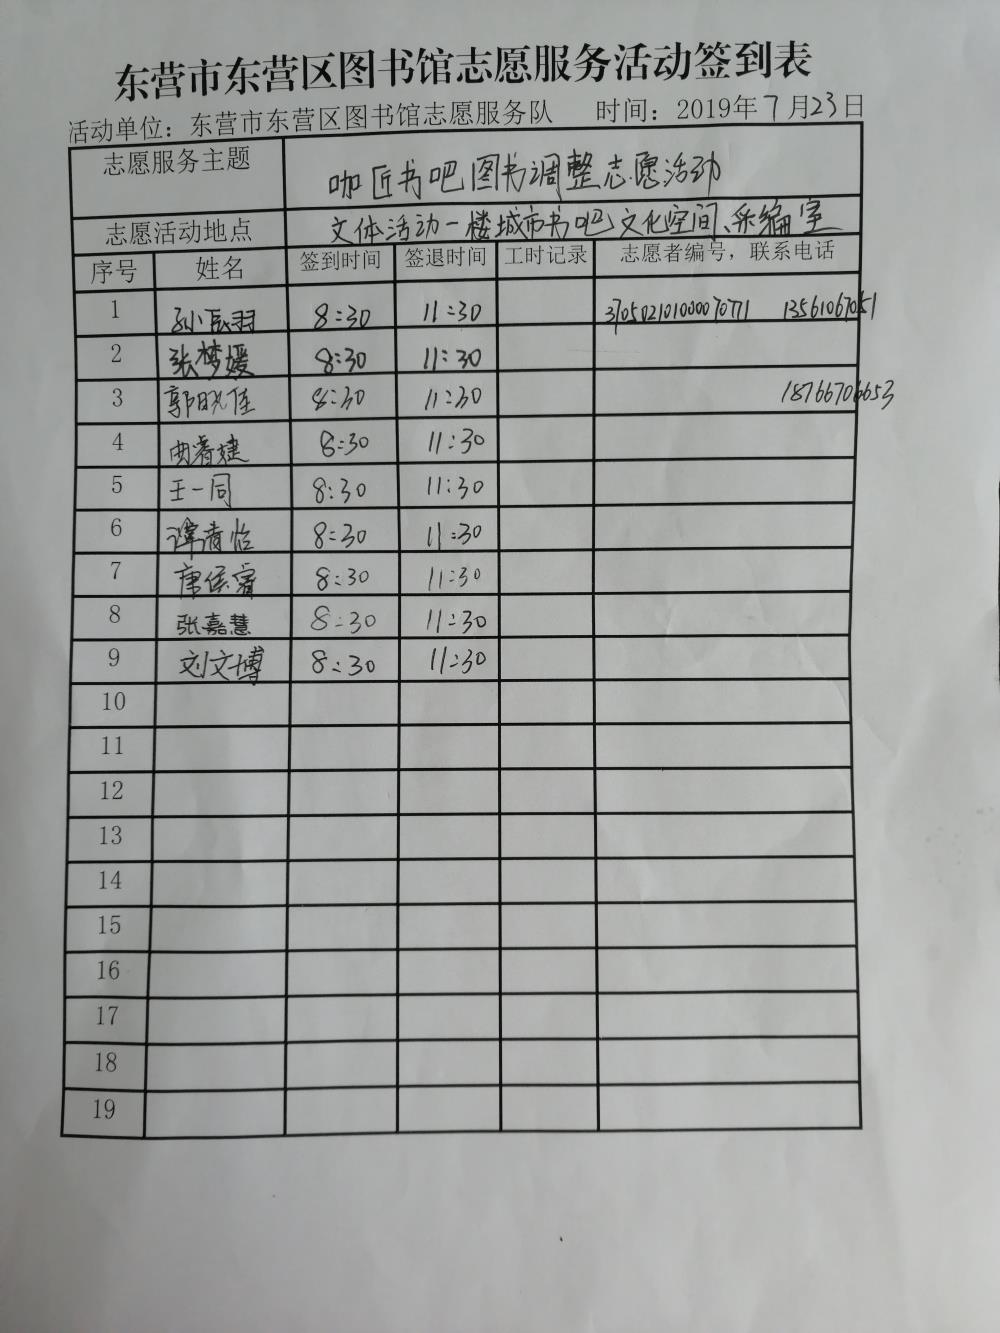 东营市东营区图书馆志愿服务活动签到表
活动单位：东营市东营区图书馆志愿服务队 时间：2019年7月23日
志愿服务主题 咖匠书吧图书调整志愿活动
志愿活动地点 文体活动一楼城市书吧文化空间、采编室
序号 姓名 签到时间 签退时间 工时记录 志愿者编号，联系电话
1 8:30 11:30 370502101000070771 13561067051
2 张梦媛 8:30 11:30
3 郭晓佳 8:30 11:30 18766706653
4 曲睿婕 8:30 11:30
5 王一同 8:30 11:30
6 谭清怡 8:30 11:30
7 唐侯睿 8:30 11:30
8 张嘉慧 8:30 11:30
9 刘文博 8:30 11:30
10
11
12
13
14
15
16
17
18
19